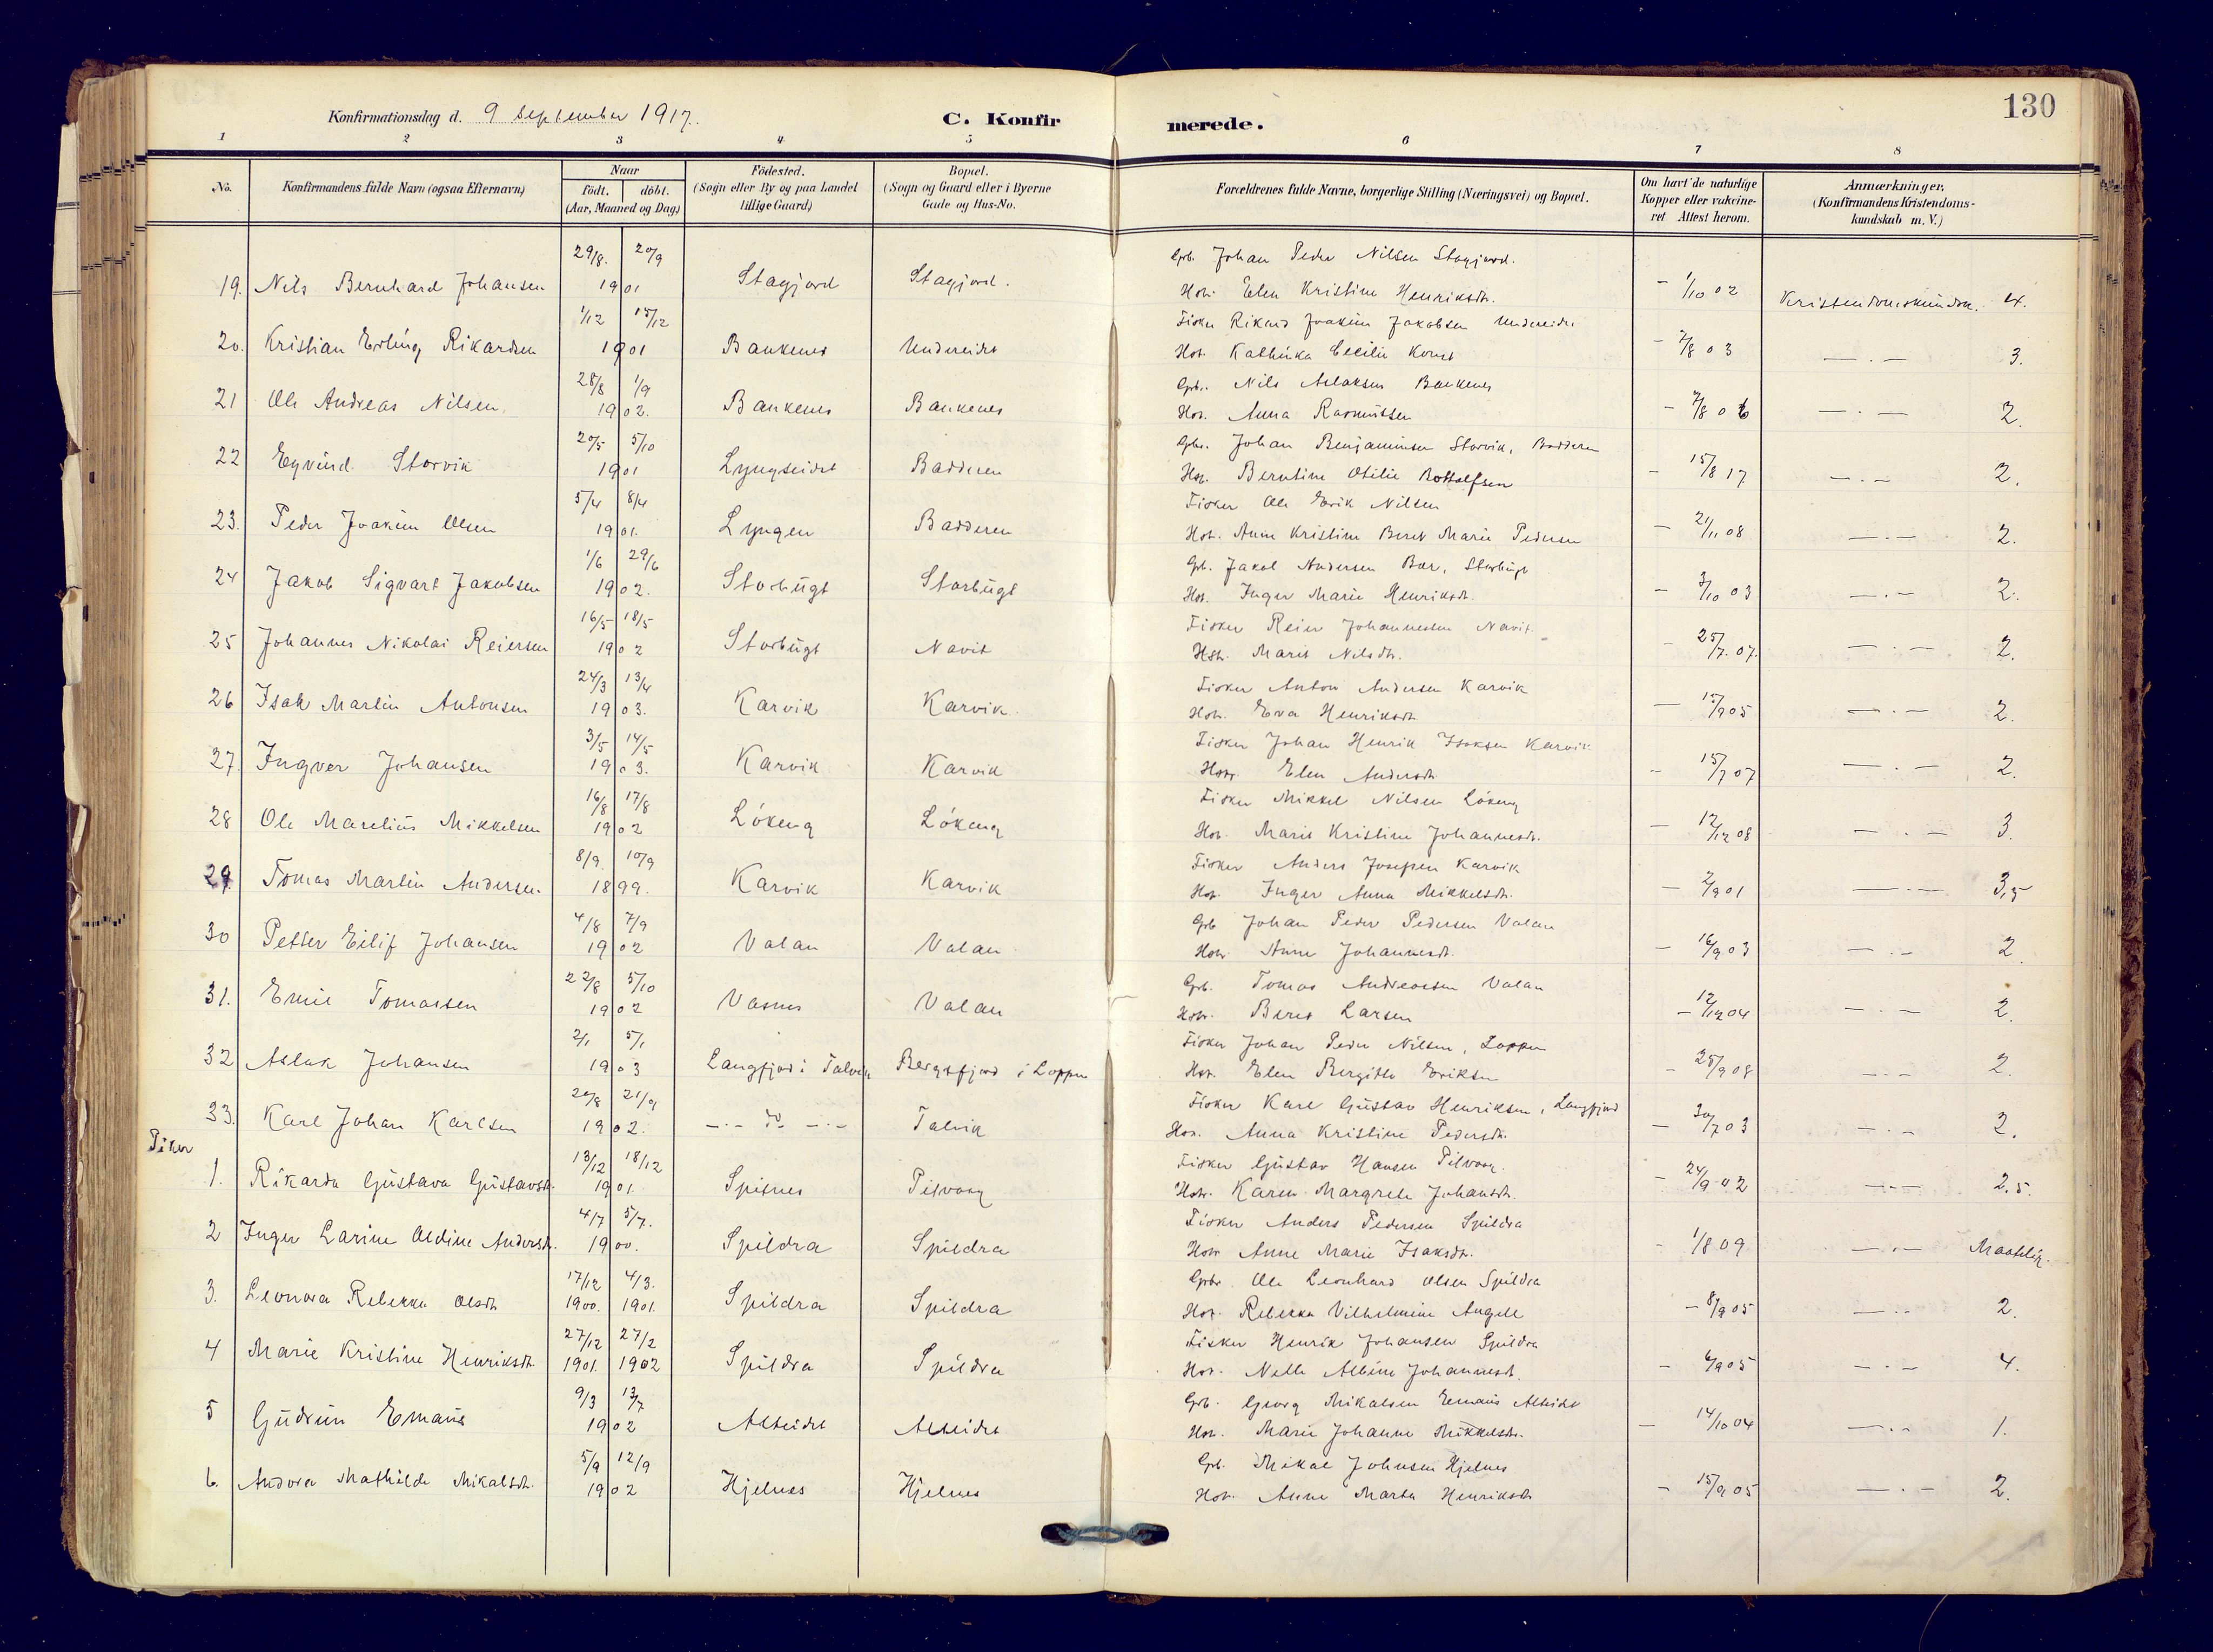 130
Konfirmationsdag d. 9 September 1917.
C. Konfirmerede.
1 2 3 4 5 6 7 8
No.
Konfirmandens fulde Navn (ogsaa Efternavn)
Naar
födt. döbt.
(Aar, Maaned og Dag)
Födested.
(Sogn eller By og paa Landet
tillige Gaard)
Bopæl.
(Sogn og Gaard eller i Byerne
Gade og Hus-No.
Forældrenes fulde Navne, borgerlige Stilling (Næringsvei) og Bopæl.
Om havt de naturlige
Kopper eller vakcine-
ret Attest herom.
Anmærkninger.
(Konfirmandens Kristendoms-
kundskab m. V.)
29/8. 20/9 Grb. Johan Peder Nilsen Stagjord.
19. Nils Bernhard Johansen 1901 Stagjord Stagjord. Hstr. Elen Kristine Henriksdtr. - 1/10 02 Kristendomskundsk. 4.
1/12 15/12 Fisker Rikard Joakim Jakobsen Undereidet
20. Kristian Erling Rikardsen 1901 Bankenes Undereidet Hstr. Kathinka Cecilie Konst - 7/8 03 — . — 3.
28/8 1/9 Grb. Nils Aslaksen Bankenes
21 Ole Andreas Nilsen. 1902. Bankenes Bankenes Hstr. Anna Rasmussen - 7/8 06 — . — 2.
20/5 5/10 Gbr. Johan Benjaminsen Storvik, Badderen
22 Eyvind Storvik 1901 Lyngseidet Badderen Hstr. Berntine Otilie Rottolfsen - 15/8 17 — . — 2.
5/4 8/4 Fisker Ole Erik Nilsen
23. Peder Joakim Olsen 1901. Lyngen Badderen Hstr. Anne Kristine Beret Marie Pedersen - 21/11 08 — . — 2.
1/6 29/6 Grb. Jakob Andersen Bær, Storbugt
24 Jakob Sigvart Jakobsen 1902. Storbugt Storbugt Hstr. Inger Marie Henriksdtr. - 3/10 03 — . — 2.
16/5 18/5 Fisker Reier Johannessen Navit.
25 Johannes Nikolai Reiersen 1902 Storbugt Navit Hstr. Marit Nilsdtr. - 25/7. 07. — . — 2.
24/3 13/4 Fisker Anton Andersen Karvik
26 Isak Martin Antonsen 1903. Karvik Karvik. Hstr. Eva Henriksdtr. — 15/9 05 — . — 2.
3/5 14/5 Fisker Johan Henrik Isaksen Karvik
27. Ingver Johansen 1903. Karvik Karvik Hstr. Elen Andersdtr. - 15/7 07 — . — 2.
16/8 17/8 Fisker Mikkel Nilsen Lökeng
28 Ole Marelius Mikkelsen 1902 Lökeng Lökeng Hstr. Marit Kristine Johannesdtr. - 12/12 08 — . — 3.
8/9. 10/9 Fisker Anders Josefsen Karvik
29. Tomas Martin Andersen. 1899. Karvik Karvik Hstr. Inger Anna Mikkelsdtr. - 2/9 01 — . — 3,5
4/8 7/9 Grb Johan Peder Pedersen Valan
30 Petter Eilif Johansen 1902 Valan Valan Hstr Anne Johannesdtr. - 16/9 03 — . — 2
22/8 5/10 Grb. Tomas Andreassen Valan
31. Emil Tomassen 1902 Vasnes Valan Hstr. Beret Larsen - 12/12 04 — . — 2.
2/1 5/1 Fisker Johan Peder Nilsen, Loppen
32 Aslak Johansen 1903 Langfjord i Talvik Bergsfjord i Loppen Hstr. Elen Bergitte Eriksen - 25/9 08 — . — 2.
20/8 21/9 Fisker Karl Gustav Henriksen, Langfjord
33. Karl Johan Karlsen 1902. — . — do — . — Talvik Hstr. Anna Kristine Pedersdtr. - 30/7 03 — . — 2.
Piker
13/12 18/12 Fisker Gustav Hansen
1. Rikarda Gustava Gustavsdtr. 1901. Spisnes Hstr. Karen Margrete Johansdtr. - 24/9 02 — . — 2.5.
4/7 5/7. Fisker Anders Pedersen Spildra
2 Inger Larine Oldine Andersdtr. 1900. Spildra Spildra Hstr Anne Marie Isaksdtr. - 1/8 09 — . — Maatelig.
17/12 4/3. Grbr. Ole Leonhard Olsen Spildra
3. Leonora Rebekka Olsdtr 1900. 1901. Spildra Spildra Hstr. Rebekka Vilhelmine Angell - 8/9 05 — . — 2.
27/12 27/2 Fisker Henrik Johansen Spildra
4 Marie Kristine Henriksdtr. 1901. 1902 Spildra Spildra Hstr. Nella Albine Johannesdtr. - 6/9 05 — . — 4.
9/3 13/7 Grb. Georg Mikalsen Emaus Alteidet
5 Gudrun Emaus 1902 Alteidet Alteidet Hstr. Marie Johanne Mikkelsdtr. — 14/10 04 — . — 1.
5/9 12/9 Grb. Mikal Johnsen Hjelnes
6. Andora Mathilde Mikalsdtr. 1902 Hjelnes Hjelnes Hstr. Anne Marta Henriksdtr - 15/9 05 — . — 2.